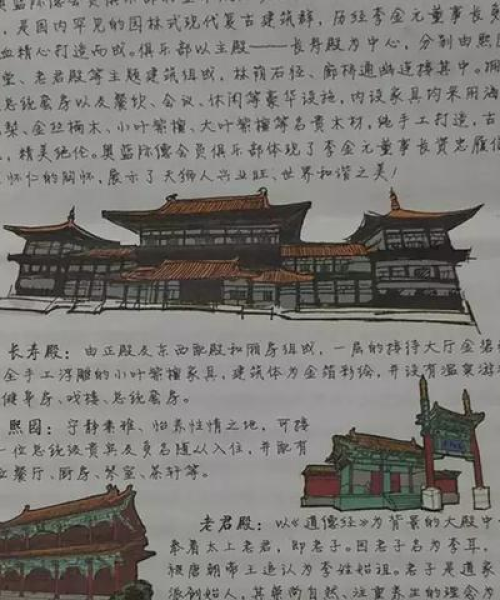 是国内罕见的园林式现代复古建筑群，历经李金元董事长多
血精心打造而成。俱乐部以主殿——长寿殿为中心，分别由熙园
堂、老君殿等主题建筑组成，林荫石径、廊桥通幽连接其中。拥
总统套房以及餐饮、会议、休闲等豪华设施，内设家具均采用海
梨、金丝楠木、小叶紫檀、大叶紫檀等名贵木材，纯手工打造，古
，精美绝伦。奥蓝际德会员俱乐部体现了李金元董事长资忠履信
怀仁的胸怀，展示了天狮人兴业旺、世界和谐之美！
长寿殿：由正殿及东西配殿和厢房组成，一层的接待大厅金箔
全手工浮雕的小叶紫檀家具，建筑体为金箔彩绘，并设有温泉游
健身房、戏楼、总统套房。
熙园：宁静素雅、怡养性情之地，可接
一位总统级贵宾及多名随从入住，并配有
立餐厅、厨房、琴室、茶轩等。
老君殿：以《道德经》为背景的大殿中
奉着太上老君，即老子。因老子名为李耳，
被唐朝帝王追认为李姓始祖。老子是道家
派创始人，其崇尚自然、注重养生的理念为